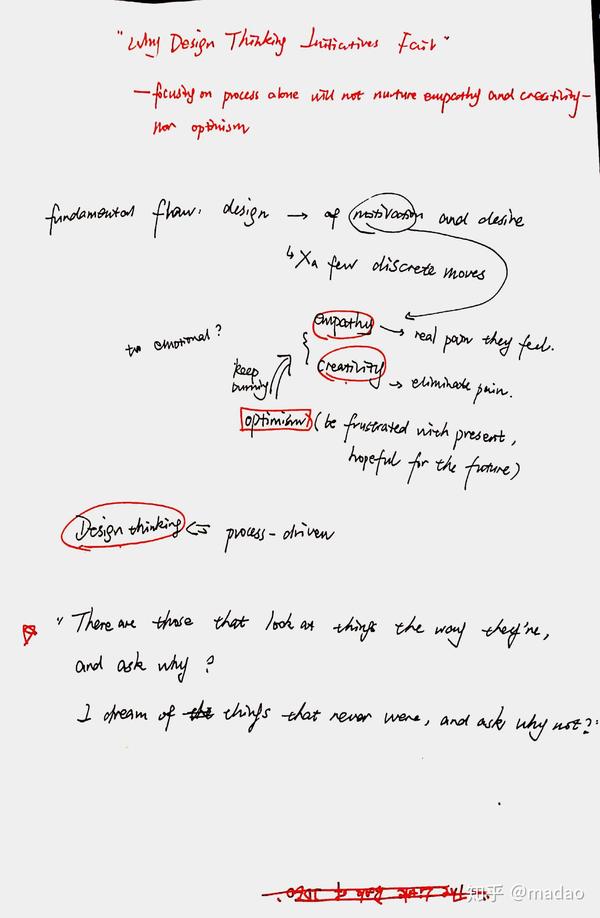 "Why Design Thinking Initiatives Fail"
— focusing on process alone will not nurture empathy and creativity —
nor optimism
fundamental flaw: design → of motivation and desire
↳ X a few discrete moves
too emotional?
empathy → real pain they feel.
keep
burning
creativity → eliminate pain.
optimism (be frustrated with present,
hopeful for the future)
Design thinking process-driven
"There are those that look at things the way they're,
and ask why?
I dream of the things that never were, and ask why not?"
知乎 @madao